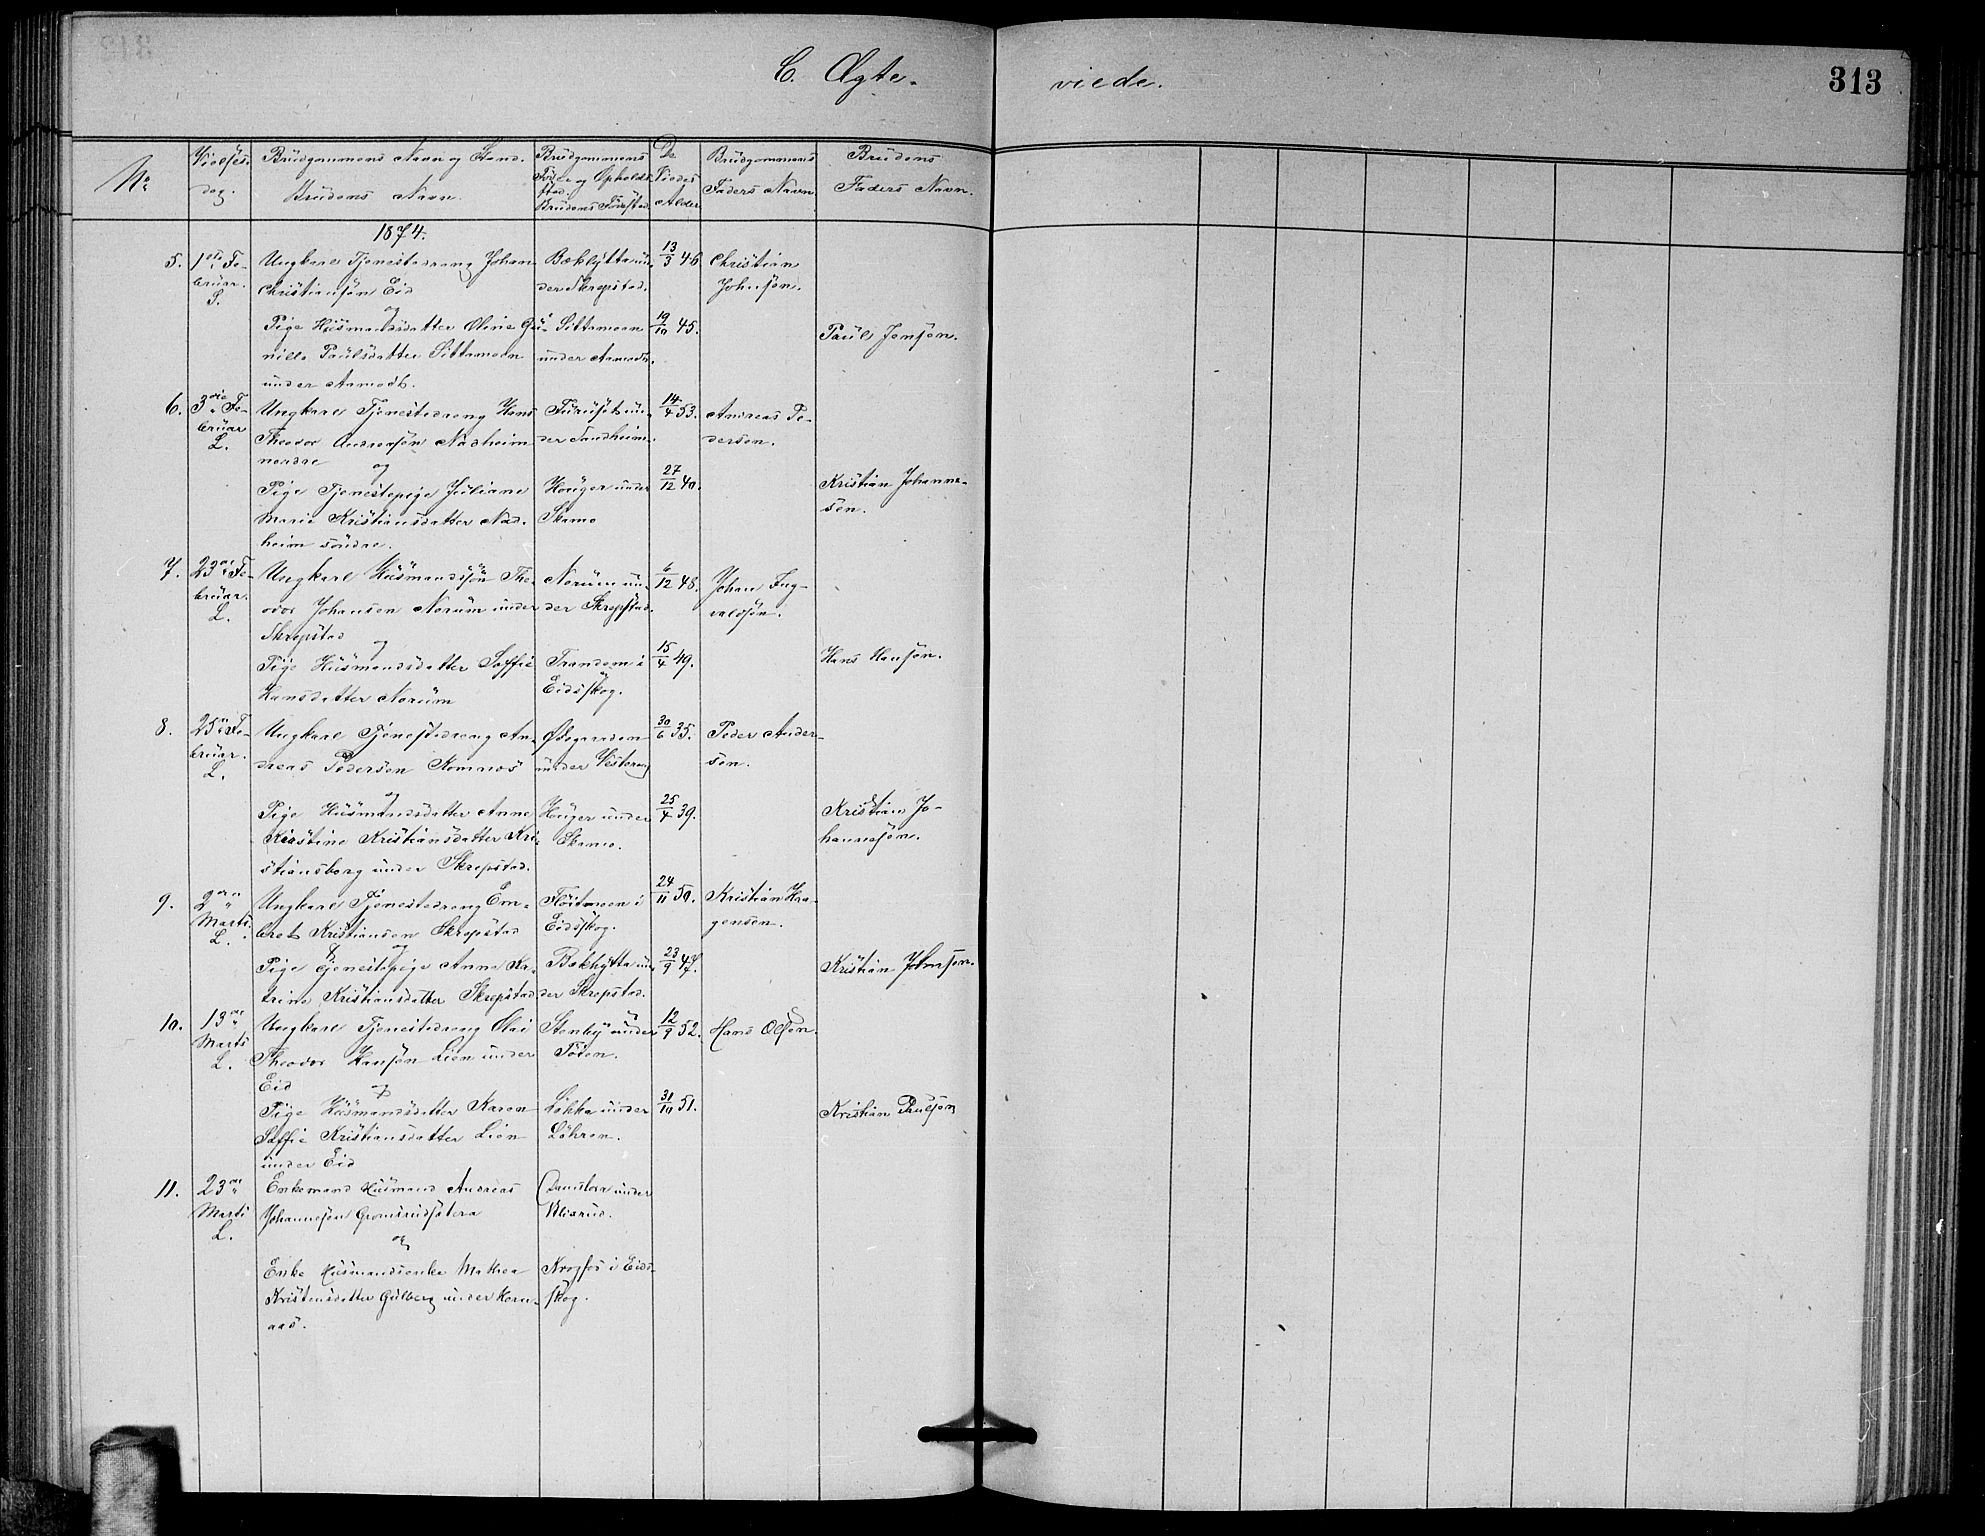 C. Ægte- viede.
313
No
Vielses-
dag.
Brüdgommens Navn og Stand.
Brüdens Navn.
Brüdgommens
Føde og Opholds-
sted.
Brüdens Fødested.
De
Viedes
Alder
Brüdgommens
Faders Navn
Brüdens
Faders Navn.
1874.
5. 1ste Fe-
brüar.
S.
Ungkarl Tjenestedreng Johan
Christiansøn Eid
Bækhytta ün-
der Skrepstad.
13/3 46
Christian
Johnsøn.
og
Pige Hüsmandsdatter Oline Gü-
nille Paulsdatter Sittamoen
ünder Aamodt.
Sittamoen
ünder Aamodt.
19/10 45.
Paül Jonsøn.
6. 3die Fe-
brüar
L.
Ungkarl Tjenestedreng Hans
Theodor Andreasøn Nadheim
nordre
Fürüset ün-
der Sandheim.
14/4 53.
Andreas Pe-
dersen.
og
Pige Tjenestepige Jüliane
Marie Kristiansdatter Nad-
heim søndre.
Haüger ünder
Skamo
27/12 40.
Kristian Johanne-
sen.
7. 23de Fe-
brüar.
L.
Ungkarl Hüsmandssøn The-
odor Johansen Norüm ünder
Skrepstad
Norüm ün-
der Skrepstad.
6/12 48.
Johan Ing-
valdsøn.
og
Pige Hüsmandsdatter Soffie
Hansdatter Norüm
Trandem i
Eidsskog.
15/4 49.
Hans Hansøn.
8. 25de Fe-
brüar.
L.
Ungkarl Tjenestedreng An-
dreas Pedersen Komnæs
Ødegaarden
ünder Vesteren
30/6 35.
Peder Ander-
sen.
og
Pige Hüsmandsdatter Anne
Kirstine Kristiansdatter Kri-
stiansborg ünder Skrepstad.
Haüger ünder
Skamo.
25/4 39.
Kristian Jo-
hannesøn.
9. 2den
Marts.
L.
Ungkarl Tjenestedreng Em-
bret Kristiansen Skrepstad
Fløitmoen i
Eidsskog.
24/11 50.
Kristian Haa-
gensen.
og
Pige Tjenestepige Anne Ka-
trine Kristiansdatter Skrepstad
Bækhytta ün-
der Skrepstad.
23/9 47.
Kristian Johnsøn.
10. 13de
Marts
L.
Ungkarl Tjenestedreng Olai
Theodor Hansøn Lien ünder
Eid
Stenby ünder
Toten.
12/9 52.
Hans Olsøn.
og
Pige Hüsmandsdatter Karen
Soffie Kristiansdatter Lien
ünder Eid
Løkka ünder
Løhren.
31/10 51.
Kristian Paülsøn
11. 23de
Marts
L.
Enkemand Hüsmand Andreas
Johannesøn Gromsrüdsætera
ünder
Blixrüd.
og
Enke Hüsmandsenke Mathea
Kristensdatter Gülberg ünder Korn-
aas.
Krogfos i Eids-
skog.